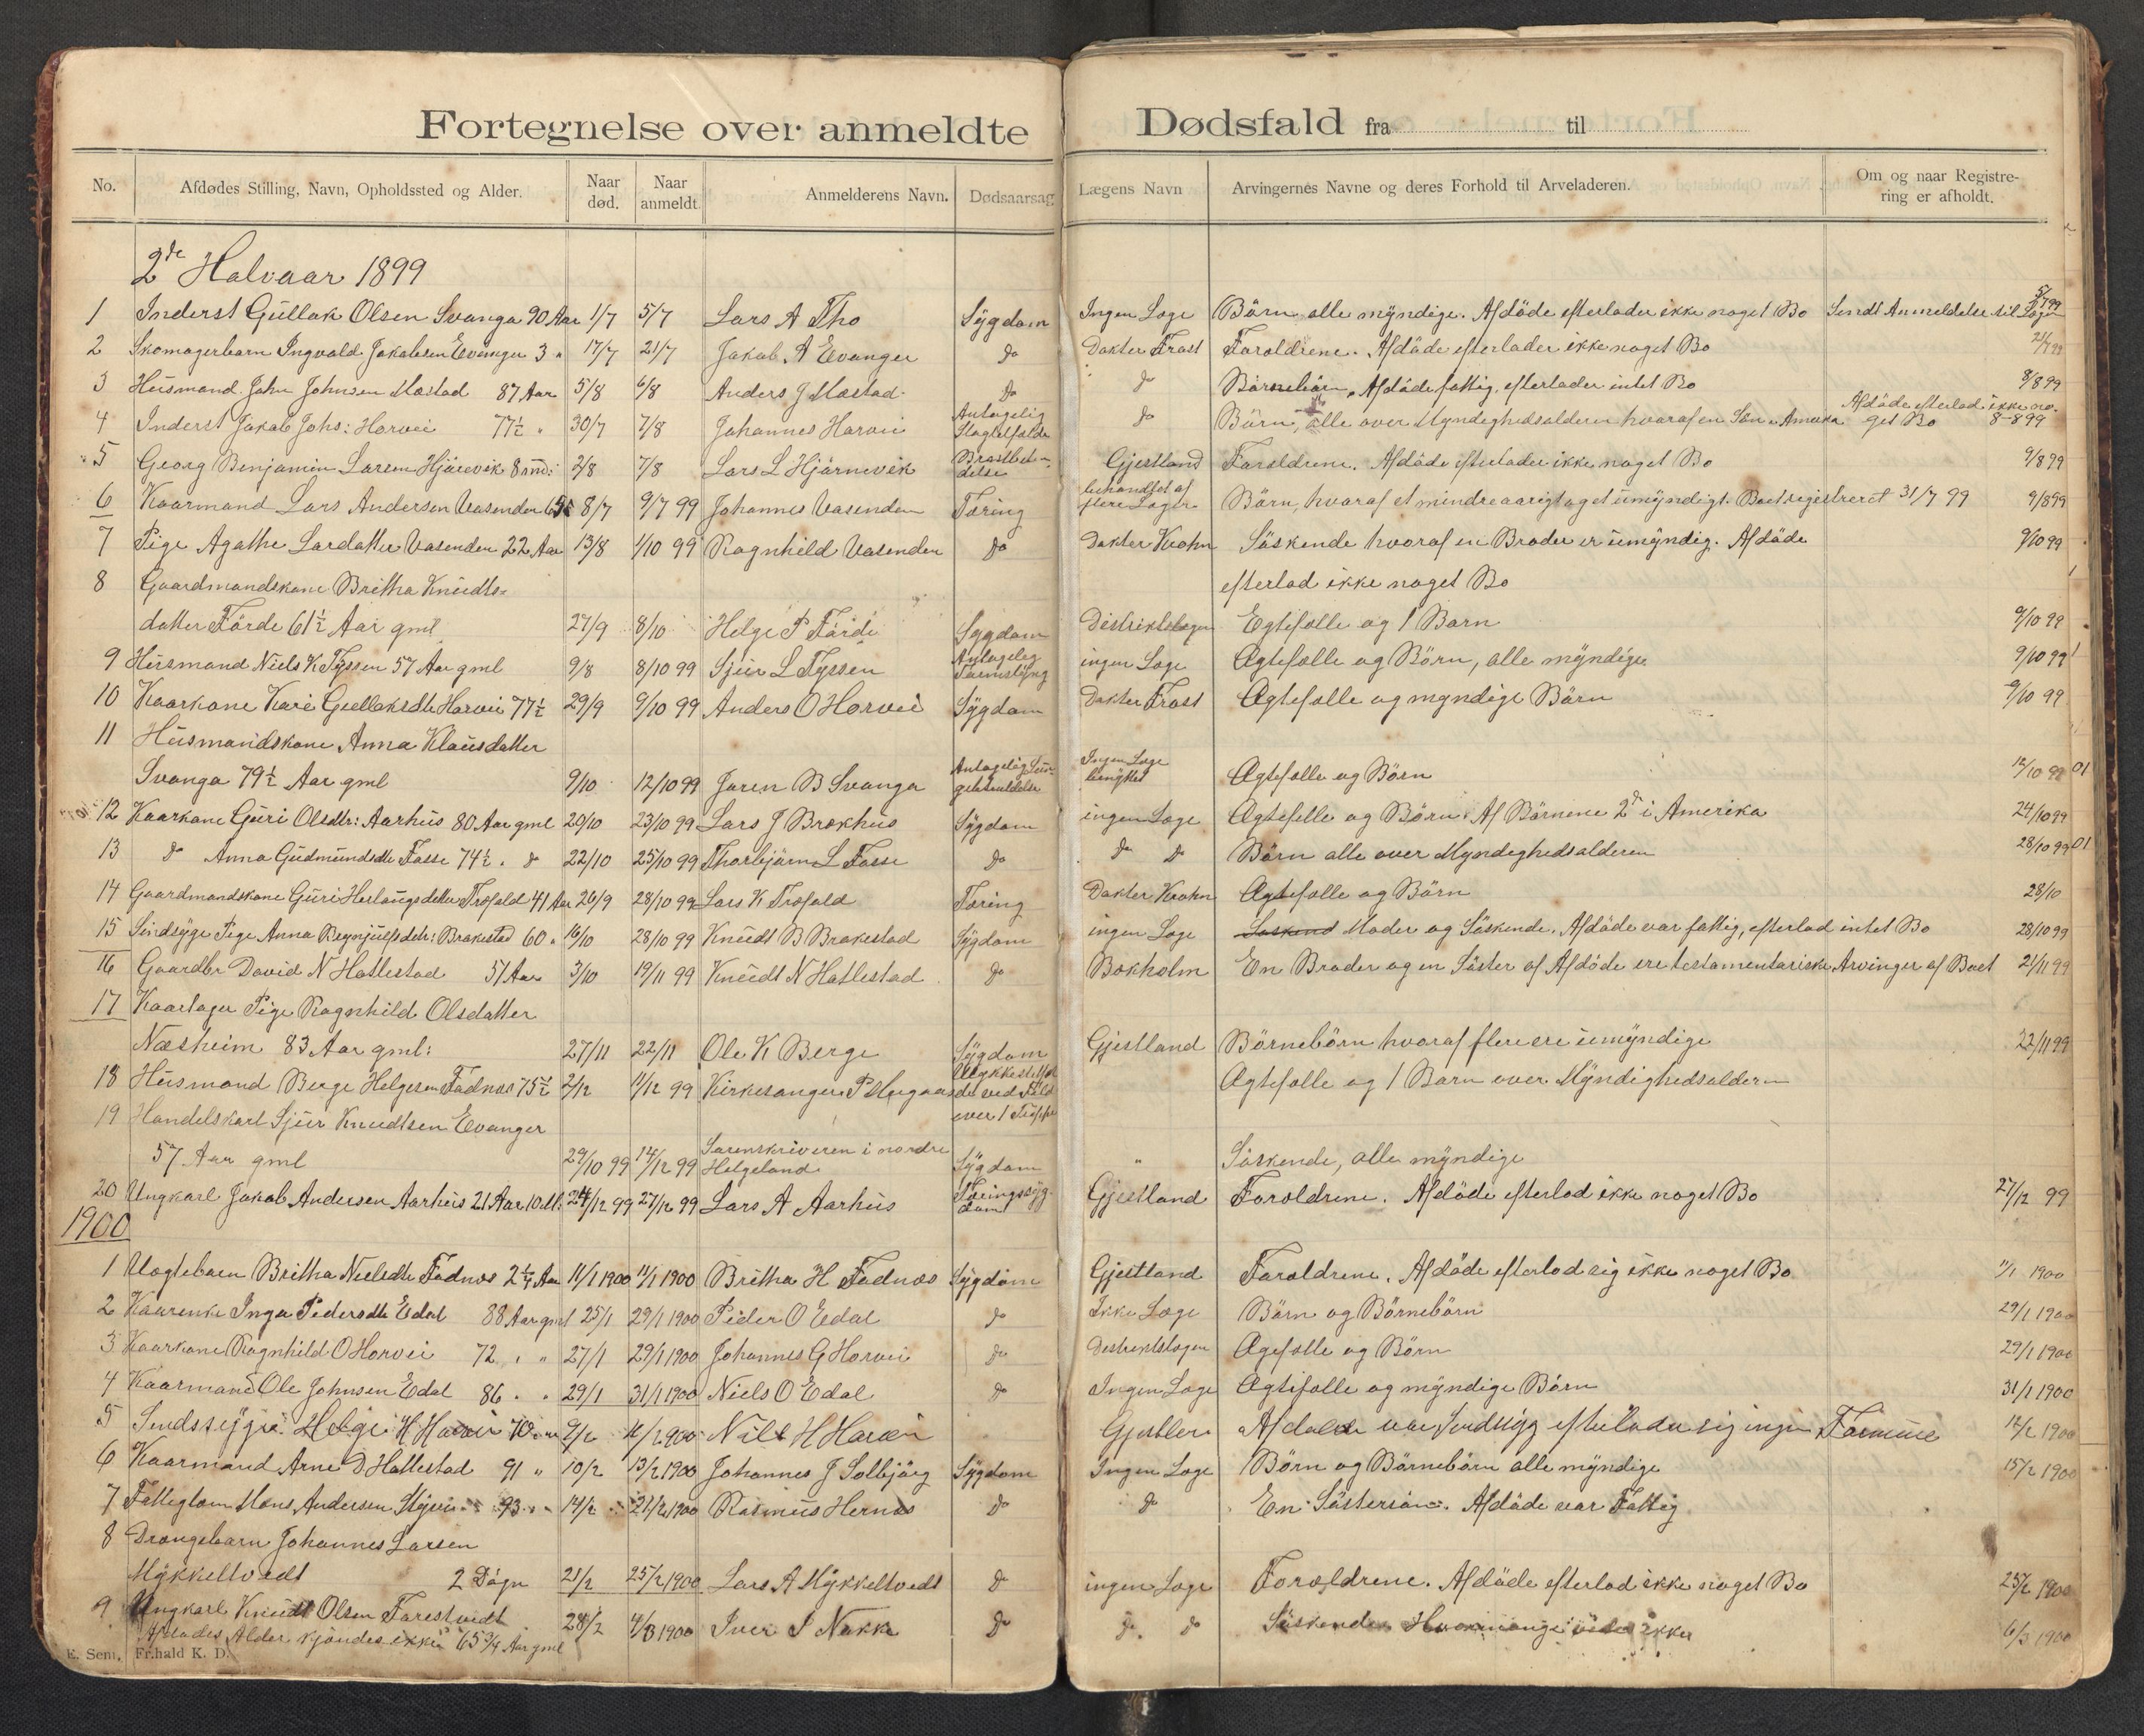 Fortegnelse over anmeldte Dødsfald fra til
No. Afdødes Stilling, Navn, Opholdssted og Alder. Naar død. Naar anmeldt. Anmelderens Navn. Dødsaarsag Lægens Navn Arvingernes Navne og deres Forhold til Arveladeren. Om og naar Registrering er afholdt.
2de Halvaar 1899
1 Inderst Gullak Olsen Svanga 90 Aar 1/7 5/7 Lars A Tho Sygdom Ingen Læge Börn alle myndige. Afdöde efterlader ikke noget Bo Sendt Anmeldelse til 5/7 99
2 Skomagerbarn Ingvald Jakobsen Evanger 3 " 17/7 21/7 Jakob A Evanger do Dokter Frost Foroldrene. Afdöde efterlader ikke noget Bo 21/7 99
3 Husmand John Johnsen Mæstad 87 Aar 5/8 6/8 Anders J Mæstad do do Börnebörn. Afdöde fattig, efterlader intet Bo 8/8 99
4 Inderst Jakob Johs: Horvei 77½ " 30/7 7/8 Johannes Horvei Antagelig Slagtilfælde do Börn, alle over Myndighedsalderen hvoraf en Sön i Amerika Afdöde efterlod ikke noget Bo 8-8 99
5 Georg Benjamin Larsen Hjörnevik 8 md: 2/8 7/8 Lars L Hjörnevik Brystbetændelse Gjestland Foroldrene. Afdöde efterlader ikke noget Bo 9/8 99
6 Kaarmand Lars Andersen Vasenden 8/7 9/7 99 Johannes Vasenden Tæring behandlet af flere Læger Börn, hvoraf et mindreaarigt og et umyndigt. Boet registreret 31/7 99 9/8 99
7 Pige Agathe Larsdatter Vasenden 22 Aar 13/8 1/10 99 Ragnhild Vasenden do Dokter Krohn Söskende hvoraf en Broder er umyndig. Afdöde 9/10 99
efterlod ikke noget Bo
8 Gaardmandskone Britha Knudts=
datter Förde 61½ Aar gml 27/9 8/10 Helge P Förde Sygdom Distriktslægen Egtefælle og 1 Barn 9/10 99
9 Husmand Niels K Tyssen 57 Aar gml 9/8 8/10 99 Sjur L Tyssen Antagelig Tarmslyng ingen Læge Ægtefælle og Börn, alle myndige 9/10 99
10 Kaarkone Kari Gullaksdtr Horvei 77½ 29/9 9/10 99 Anders O Horvei Sygdom Dokter Frost Ægtefælle og myndige Börn 9/10 99
11 Husmandskone Anna Klausdatter
Svanga 79½ Aar gml 9/10 12/10 99 Joren B Svanga Antagelig Ingen Læge benyttet Ægtefælle og Börn 12/10 99 01
12 Kaarkone Guri Olsdtr: Aarhus 80 Aar gml 20/10 23/10 99 Lars J Brækhus Sygdom ingen Læge Ægtefelle og Börn. Af Börnene 2de i Amerika 24/10 99
13 do Anna Gudmundsdtr Fosse 74½ " do 22/10 25/10 99 Thorbjörn L Fosse do do do Börn alle over Myndighedsalderen 28/10 99 01
14 Gaardmandskone Guri Herlaugsdatter Træfald 41 Aar 26/9 28/10 99 Lars K Træfald Tæring Dokter Krohn Ægtefælle og Börn 28/10
15 Sindsyge Pige Anna Brynjulfsdtr: Brakestad 60 " 16/10 28/10 99 Knudt B Brakestad Sygdom ingen Læge Söskend Moder og Söskende. Afdöde var fattig, efterlod intet Bo 28/10 99
16 Gaardbr David N Hallestad 51 Aar 3/10 19/11 99 Knudt N Hallestad do Bokholm En Broder og en Söster af Afdöde ere testamentariske Arvinger af Boet 21/11 99
17 Kaartager Pige Ragnhild Olsdatter
Næsheim 83 Aar gml: 27/11 22/11 Ole K Berge Sygdom Gjestland Börnebörn hvoraf flere ere umyndige 22/11 99
18 Husmand Berge Helgesen Fadnes 75½ 2/12 11/12 99 Kirkesanger P Mugaas Ulykkestilfældet ved Fald over 1 Trappe Ægtefælle og 1 Barn over Myndighedsalderen
19 Handelskarl Sjur Knudtsen Evanger
57 Aar gml 29/10 99 14/12 99 Sorenskriveren i nordre Helgeland Sygdom " Söskende, alle myndige
20 Ungkarl Jakob Andersen Aarhus 21 Aar 10 M: 24/12 99 27/12 99 Lars A Aarhus Tæringssygdom Gjestland Foroldrene. Afdöde efterlod ikke noget Bo 27/12 99
1900
1 Uægtebarn Britha Nielsdtr Fadnes 2¼ Aar 11/1 1900 11/1 1900 Britha H Fadnes Sygdom Gjestland Foroldrene. Afdöde efterlod sig ikke noget Bo 11/1 1900
2 Kaarenke Inga Pedersdtr Edal 88 Aar gml 25/1 29/1 1900 Peder O Edal do Ikke Læge Börn og Börnebörn 29/1 1900
3 Kaarkone Ragnhild O Horvei 72 " " 27/1 29/1 1900 Johannes G Horvei do Destriktslægen Ægefælle og Börn 29/1 1900
4 Kaarmand Ole Johnsen Edal 86 " " 29/1 31/1 1900 Niels O Edal do Ingen Læge Ægtefælle og myndige Börn 31/1 1900
5 Sindssygge Helge H Horvei 70 9/2 12/2 1900 Nils H Horvei Afdøde var Sindsyg efterlader sig ingen Formue 14/2 1900
6 Kaarmand Arne D Hallestad 91 " 10/2 13/2 1900 Johannes J Solbjörg Sygdom Ingen Læge Börn og Börnebörn alle myndige 15/2 1900
7 Fattiglem Mons Andersen 93 " " 14/2 21/2 1900 Rasmus Hernes do do En Söstersön. Afdöde var Fattig
8 Drængebarn Johannes Larsen
Mykkeltvedt 2 Dögn 21/2 25/2 1900 Lars A Mykkeltvedt do ingen Læge Foroldrene. Afdöde efterlod ikke noget Bo 25/2 1900
9 Ungkarl Knudt Olsen Farestvedt 28/2 4/3 1900 Iver I Nække do do do Söskende. Hvormange vides ikke 6/3 1900
Afdödes Alder kjendes ikke 65¾ Aar gml
E. Sem, Fr.hald K. D.